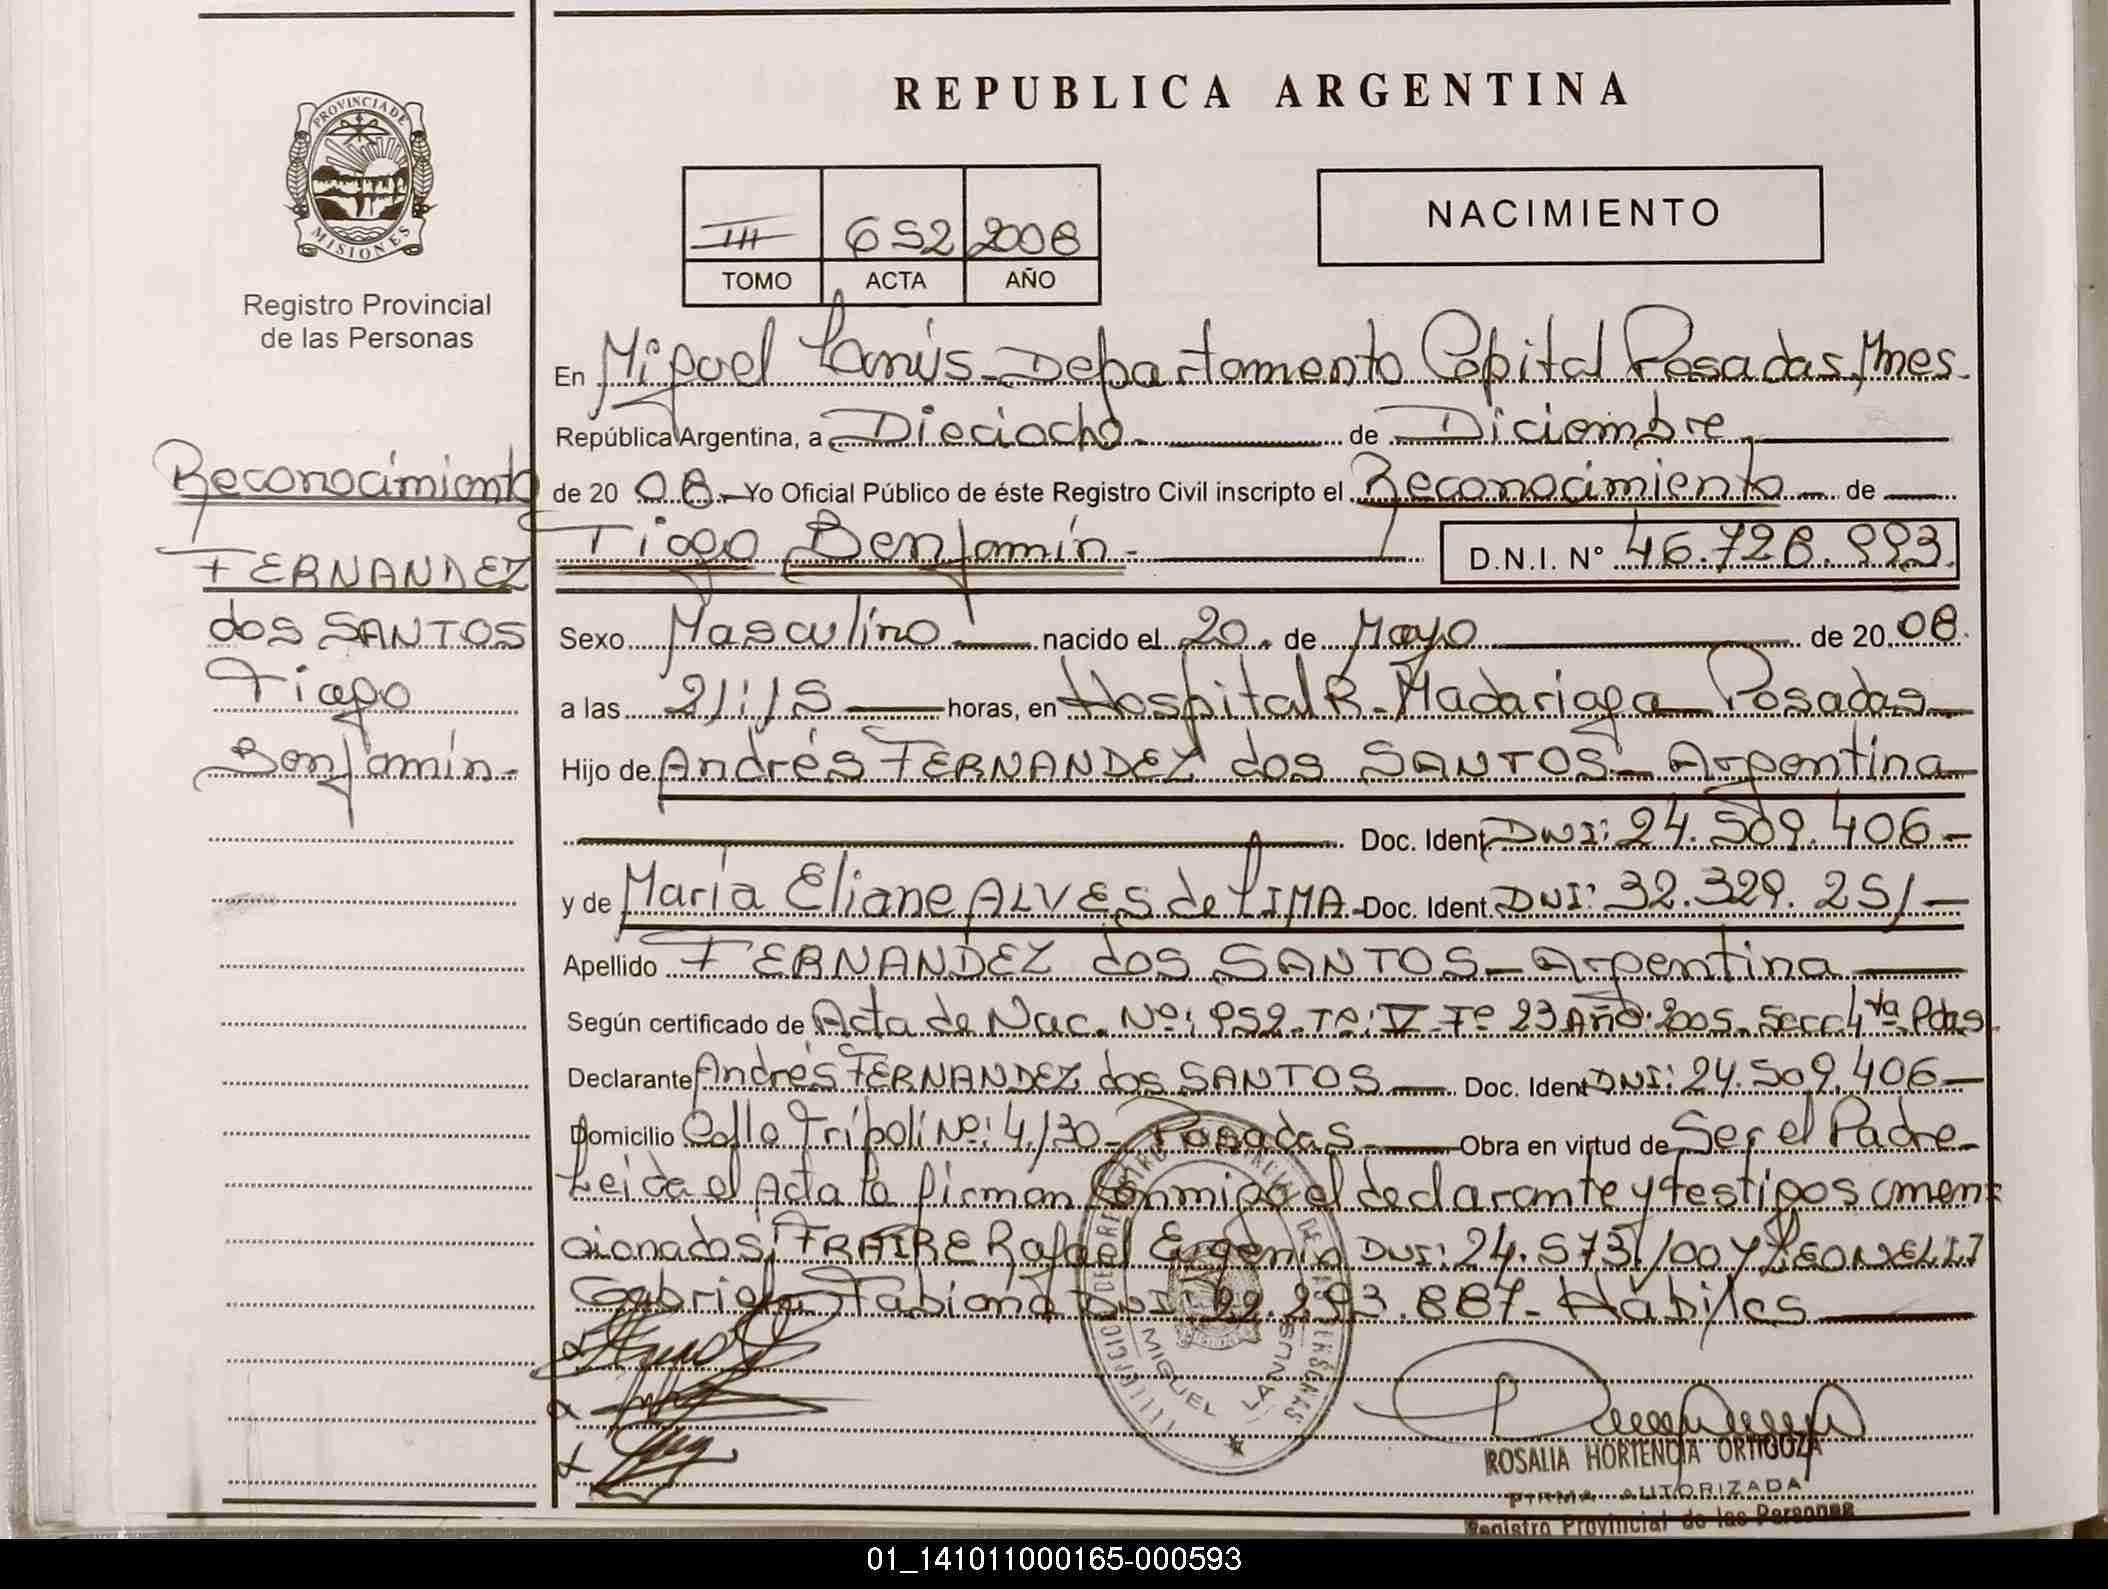 PROVINCIA DE
MISIONES
Registro Provincial
de las Personas
Reconocimiento
FERNANDEZ
dos SANTOS
Tiago
Benjamín.-
REPUBLICA ARGENTINA
III 652 2008
TOMO ACTA AÑO
NACIMIENTO
En Miguel Lanús-Departamento Capital Posadas, Mnes.
República Argentina, a Dieciocho.- de Diciembre
de 20 08.- Yo Oficial Público de éste Registro Civil inscripto el Reconocimiento de
Tiago Benjamín.- D.N.I. N° 46.728.993.
Sexo Masculino nacido el 20. de Mayo de 20 08.
a las 21:15 horas, en Hospital R. Madariaga Posadas
Hijo de Andrés FERNANDEZ dos SANTOS- Argentina
Doc. Ident. DNI: 24.509.406-
y de María Eliane ALVES de LIMA-Doc. Ident. DNI: 32.329.251-
Apellido FERNANDEZ dos SANTOS- Argentina
Según certificado de Acta de Nac. Nº: 952-Tº: V-Fº 23 Año: 2005. Secc 4ta Pdas
Declarante Andrés FERNANDEZ dos SANTOS Doc. Ident DNI: 24.509.406-
Domicilio Calle Trípoli Nº: 4130- Posadas Obra en virtud de Ser el Padre-
Leida el Acta la firman Conmigo el declarante y testigos (men-
cionados) FRAIRE Rafael Eugenio DNI: 24.573.100 y LEONELLI
Gabriela Fabiana DNI: 22.293.887- Hábiles
MIGUEL LANUS
ROSALIA HORTENCIA ORTIGOZA
FIRMA AUTORIZADA
Registro Provincial de las Personas
01_141011000165-000593